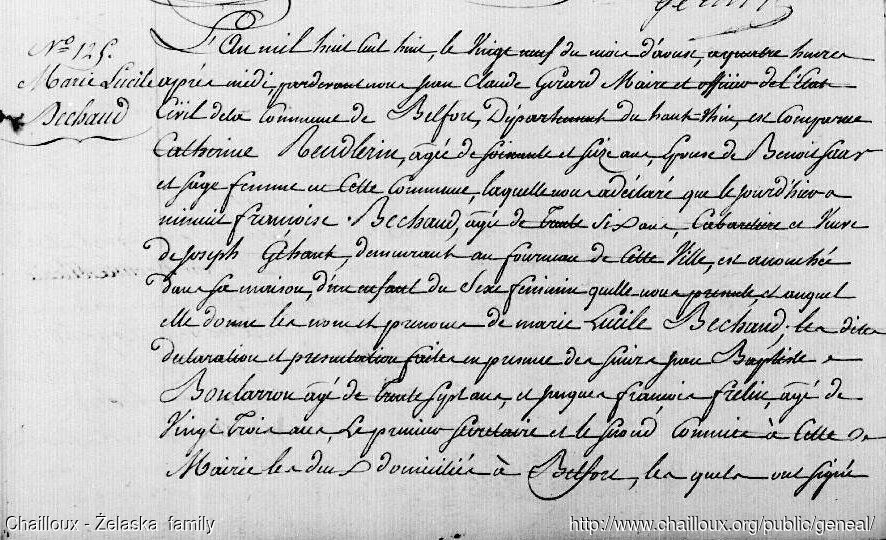 No 125.
Marie Lucile
Bechaud
L'An mil huit cent huit, le Vingt neuf du mois d'aoust, a quatre heures
après midi, pardevant nous Jean Claude Gérard Maire et officier de l'Etat
Civil de la Commune de Belfort, Département du haut=Rhin, est Comparue
Catherine Reudlerin, agée de soixante et seize ans, Epouse de Benoit Saar
et sage femme en Cette Commune, laquelle nous a déclaré que le jourd'hier a
minuit françoise Bechaud, agée de Trente six ans, Cabaretiere et Veuve
de Joseph Géhant, demeurant au fourneau de Cette Ville, est accouchée
dans sa maison, d'un enfant du Sexe feminin quelle nous presente, et auquel
elle donne les nom et prenoms de marie Lucile Bechaud; les dites
declaration et presentation faites en presence des sieurs Jean Baptiste
Boularron agé de Trente sept ans, et Jacques françois frelin, agé de
Vingt Trois ans, Le premier secretaire et le second Commis à Cette
Mairie les deux domiciliés à Belfort, les quels ont signé
Chailloux - Żelaska family
http://www.chailloux.org/public/geneal/